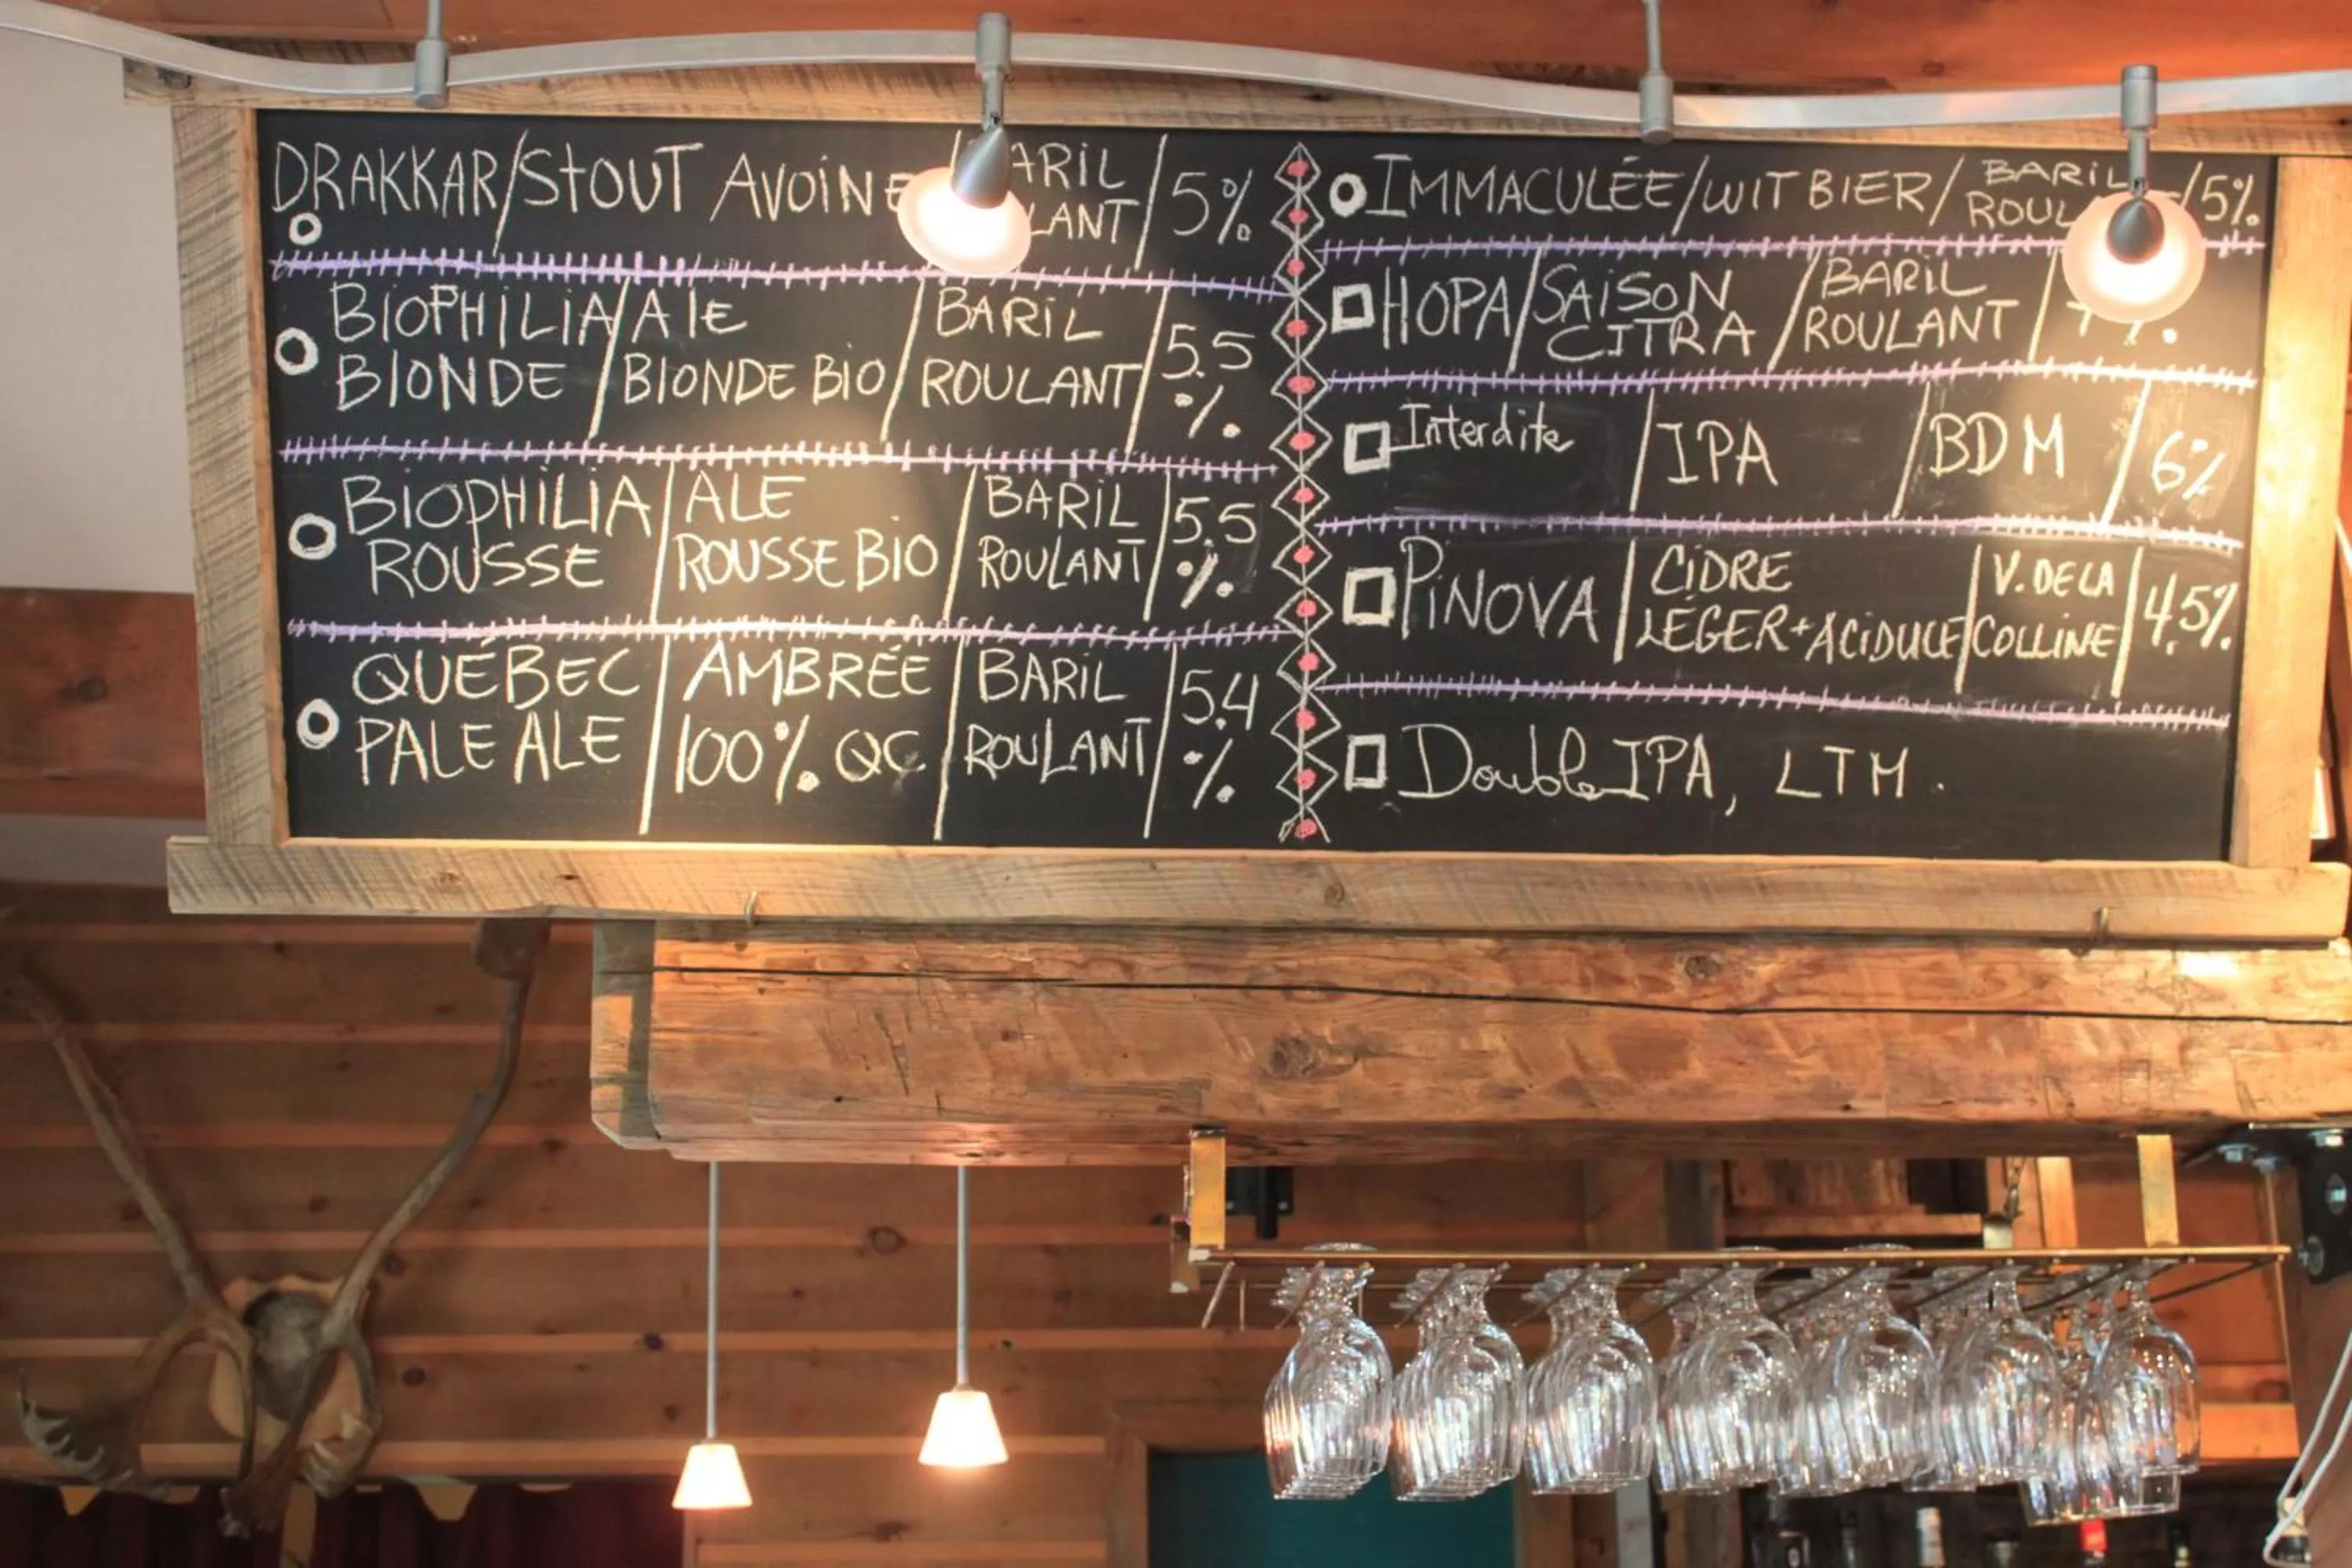 DRAKKAR/STOUT AVOINE / ARIL LANT / 5%
BIOPHILIA BLONDE / ALE BLONDE BIO / BARIL ROULANT / 5.5 %
BIOPHILIA ROUSSE / ALE ROUSSE BIO / BARIL ROULANT / 5.5 %
QUÉBEC PALE ALE / AMBRÉE 100% QC / BARIL ROULANT / 5.4 %
IMMACULÉE/WIT BIER/ BARIL ROUL /5%
HOPA/SAISON CITRA / BARIL ROULANT /
Interdite / IPA / BDM / 6%
PINOVA / CIDRE LÉGER+ACIDULÉ / V. DE LA COLLINE / 4.5%
Double IPA, LTM.